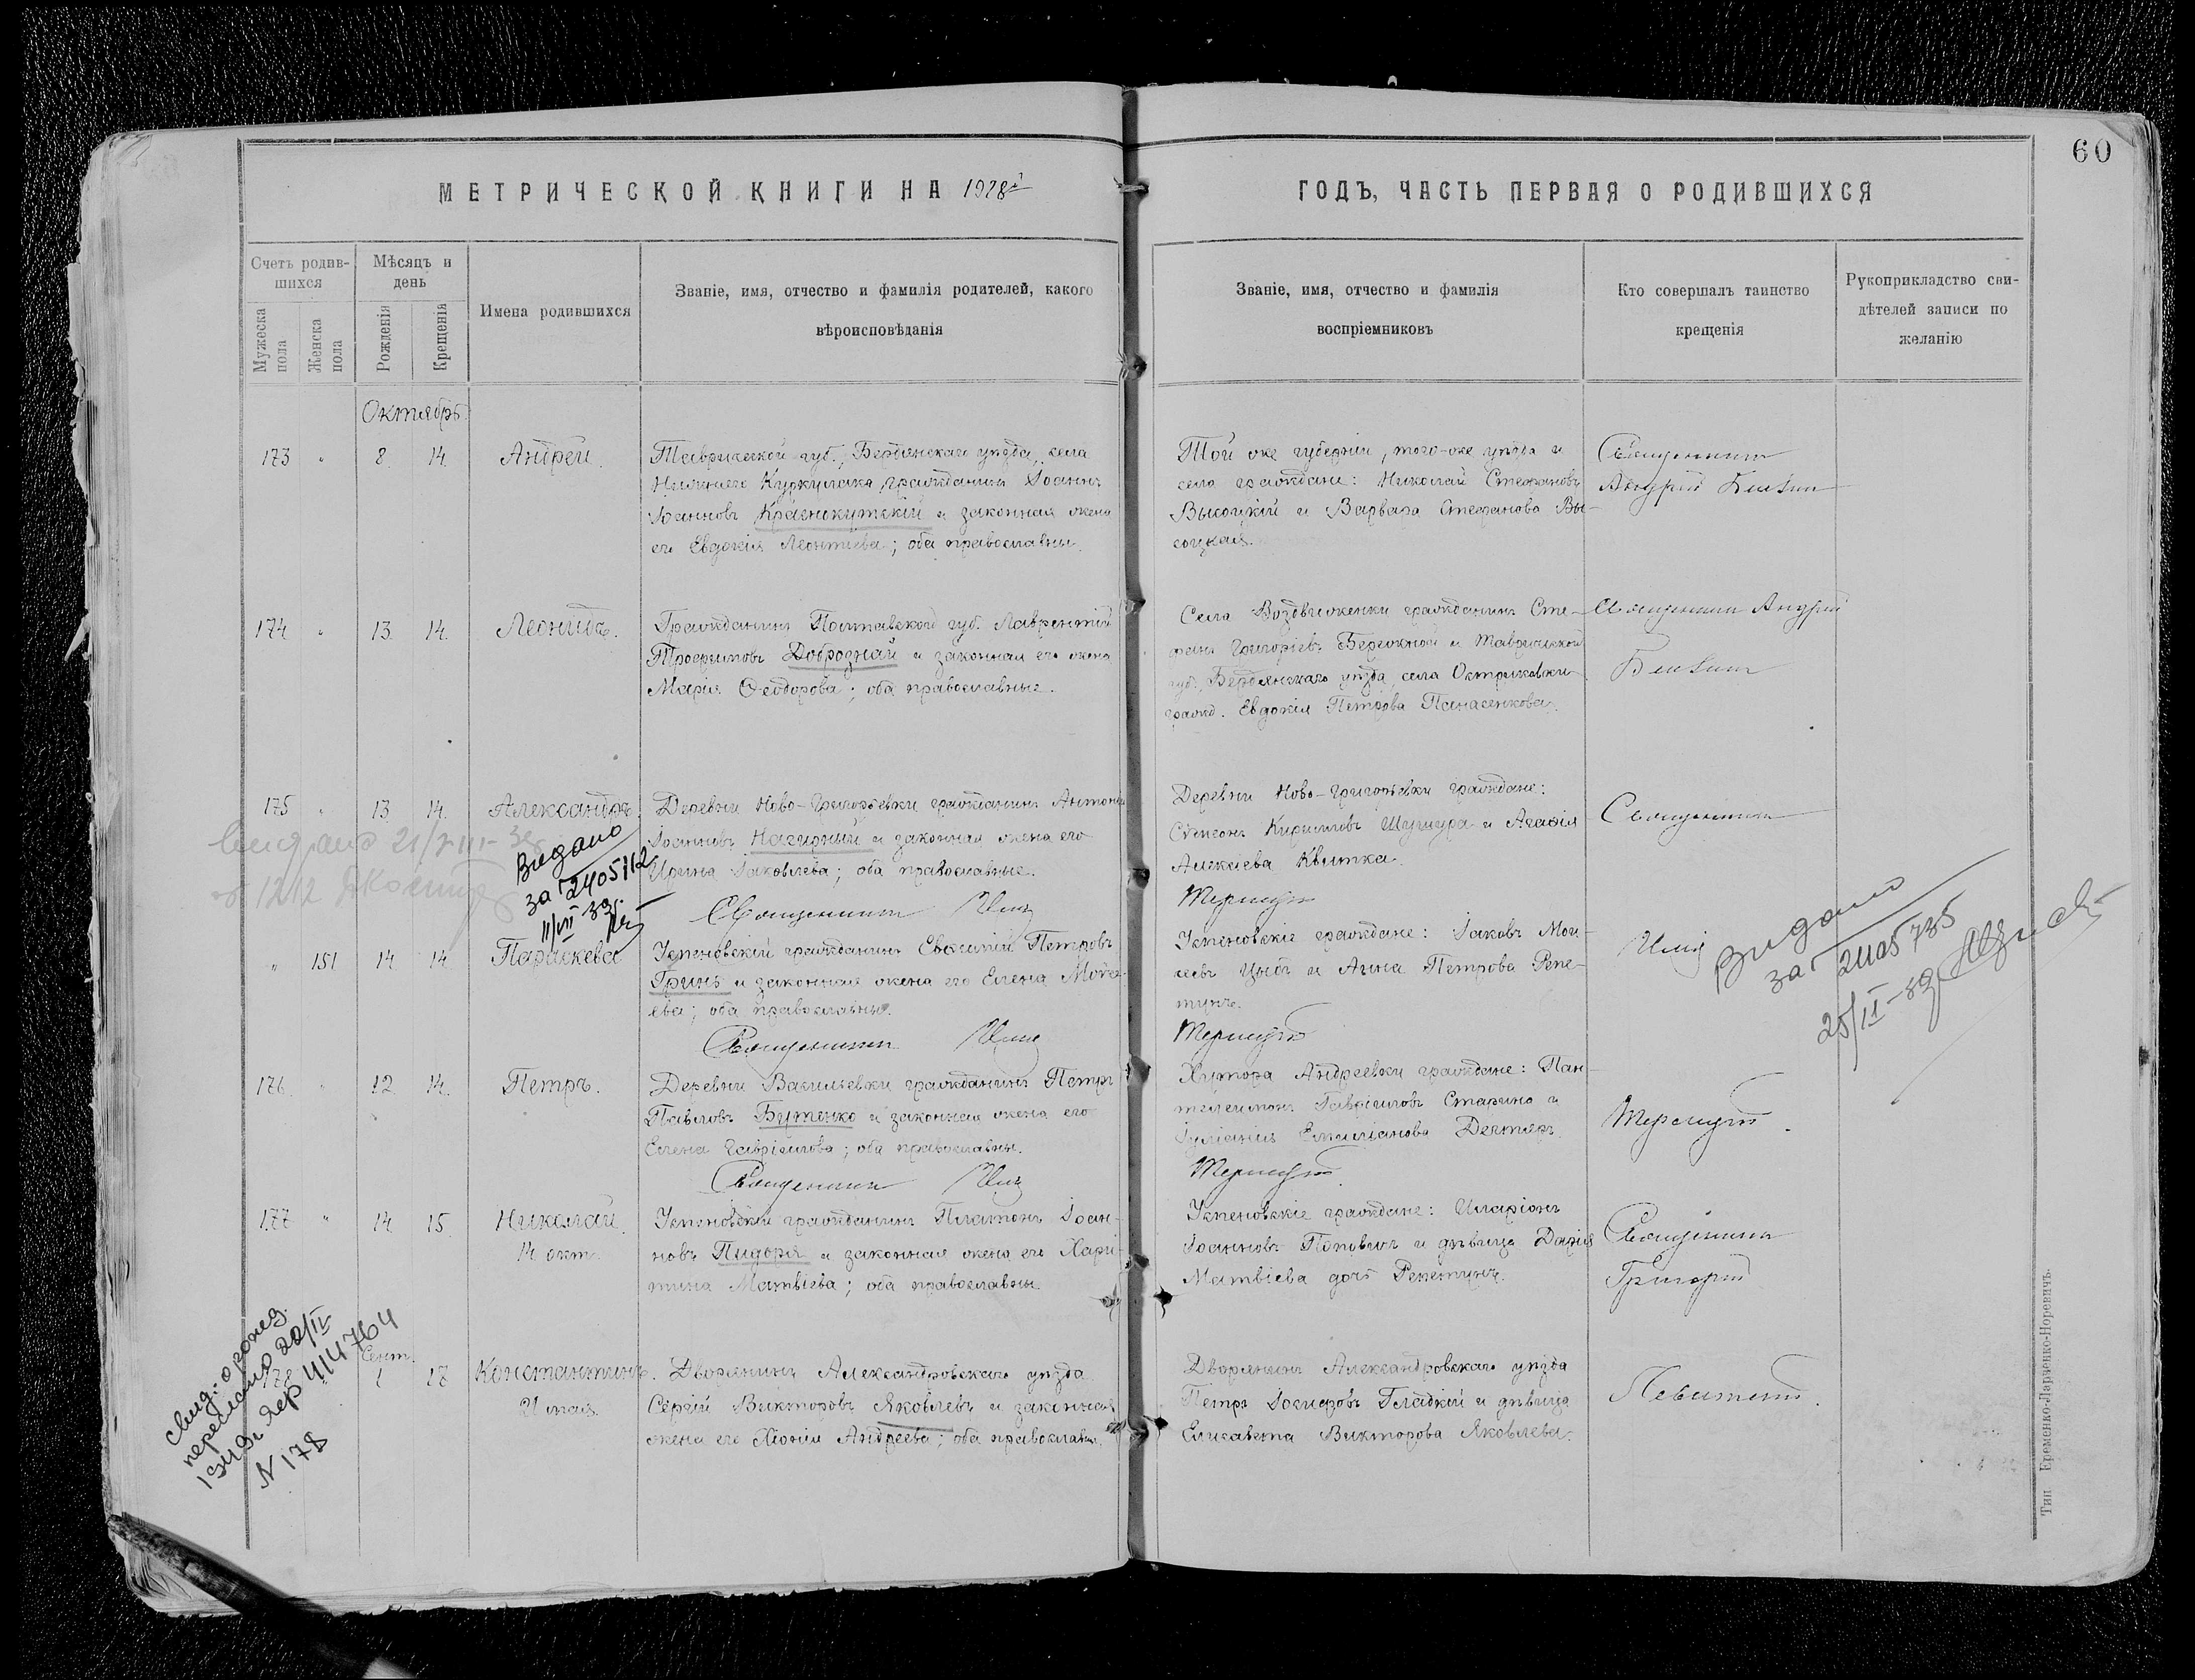 60
МЕТРИЧЕСКОЙ КНИГИ НА 1928й
ГОДЪ, ЧАСТЬ ПЕРВАЯ О РОДИВШИХСЯ
Счетъ родив-
шихся
Мужеска пола
Женска пола
Мѣсяцъ и
день
Рожденія
Крещенія
Имена родившихся
Званіе, имя, отчество и фамилія родителей, какого
вѣроисповѣданія
Званіе, имя, отчество и фамилія
воспріемниковъ
Кто совершалъ таинство
крещенія
Рукоприкладство сви-
дѣтелей записи по
желанію
Октябрь
173 " 8 14 Андрей.
Таврической губ., Бердянскаго уѣзда, села
Нижняго Куркулака гражданинъ Іоаннъ
Іоанновъ Краснокутскій и законная жена
его Евдокія Леонтіева; оба православны.
Той же губерніи, того-же уѣзда и
села граждане: Николай Стефановъ
Высоцкій и Варвара Стефанова Вы-
соцкая.
Священникъ
Андрей
174 " 13 14. Леонидъ.
Гражданинъ Полтавской губ. Лаврентій
Трофимовъ Доброзрай и законная его жена
Марія Ѳеодорова; оба православные.
Села Воздвиженки гражданинъ Сте-
фанъ Григоріевъ Бережной и Таврической
губ., Бердянскаго уѣзда, села Остриковки
гражд. Евдокія Петрова Панасенкова.
Священникъ Андрей
175 " 13 14. Александръ.
Деревни Ново-Григорьевки гражданинъ Антоній
Іоанновъ Нагирный и законная жена его
Ирина Іаковлева; оба православные.
Священникъ
Деревни Ново-Григорьевки граждане:
Симеонъ Кирилловъ Шушура и Агафія
Алексіева Квитка.
Священникъ
Видано
за 2405112
11/VII-39
" 151 14 14 Параскева
Успеновскій гражданинъ Евѳимій Петровъ
Гринь и законная жена его Елена Мойсе-
ева; оба православны.
Священникъ
Успеновскіе граждане: Іаковъ Мои-
сеевъ и Анна Петрова Репе-
тунъ.
Видано
за 2405735
25/II-39
176 " 12 14. Петръ.
Деревни Васильевки гражданинъ Петръ
Павловъ Бутенко и законная жена его
Елена Гавріилова; оба православны.
Священникъ
Хутора Андреевки граждане: Пан-
телеимонъ Гавріиловъ Старина и
Іуліанія Емиліанова Дегтярь.
177 " 14 15. Николай.
14 окт.
Успеновскій гражданинъ Платонъ Іоан-
новъ Пидоря и законная жена его Хари-
тина Матвіева; оба православны.
Успеновскіе граждане: Иларіонъ
Іоанновъ Поповичъ и дѣвица Дарія
Матвіева дочь Репетунъ.
Священникъ
Григорій
Сент.
178 1 17 Константинъ.
Дворянинъ Александровскаго уѣзда
Сергій Викторовъ Яковлевъ и законная
жена его Хіонія Андреева; оба православн.
Дворянинъ Александровскаго уѣзда
Петръ Іосифовъ Гладкій и дѣвица
Елисавета Викторова Яковлева.
Левитскій.
свид. о рожд.
переслано 20/IV
414764
N 178
Тип. Еременко-Ларженко-Норевичъ.